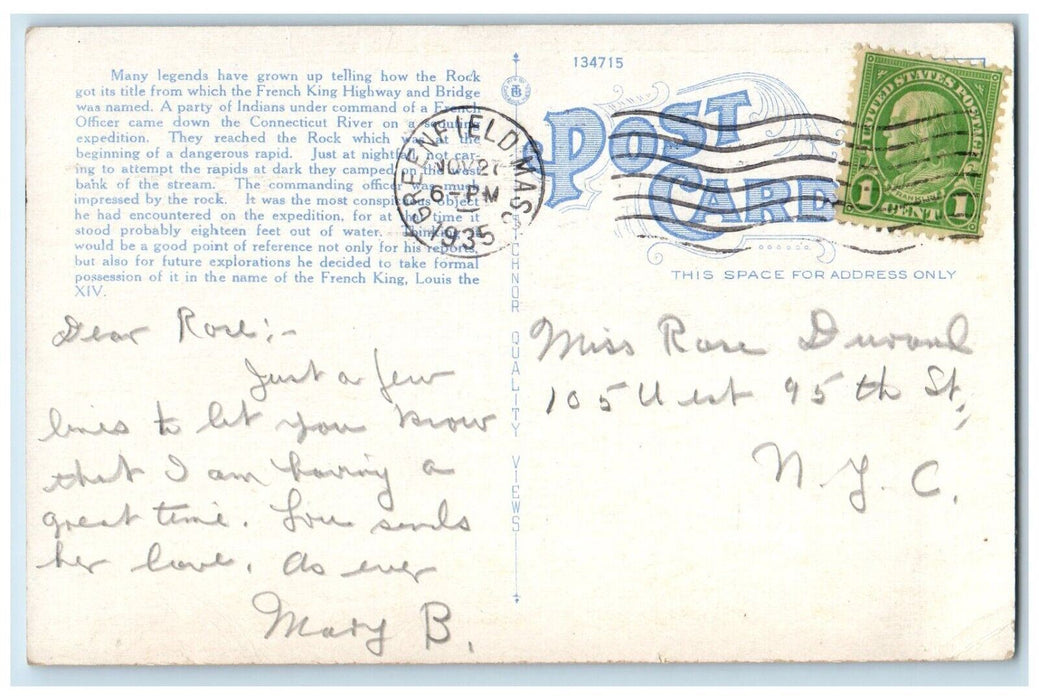 Many legends have grown up telling how the Rock
got its title from which the French King Highway and Bridge
was named. A party of Indians under command of a French
Officer came down the Connecticut River on a scouting
expedition. They reached the Rock which was at the
beginning of a dangerous rapid. Just at nightfall, not car-
ing to attempt the rapids at dark they camped on the west
bank of the stream. The commanding officer was much
impressed by the rock. It was the most conspicuous object
he had encountered on the expedition, for at that time it
stood probably eighteen feet out of water. Thinking it
would be a good point of reference not only for his reports,
but also for future explorations he decided to take formal
possession of it in the name of the French King, Louis the
XIV.
Dear Rose:-
Just a few
lines to let you know
that I am having a
great time. Lou sends
her love. As ever
Mary B.
TICHNOR QUALITY VIEWS
134715
POST
CARD
THIS SPACE FOR ADDRESS ONLY
GREENFIELD MASS
NOV 27
6-PM
1935
UNITED STATES POSTAGE
FRANKLIN
1 CENT 1
Miss Rose Durand
105 West 95th St,
N. Y. C.